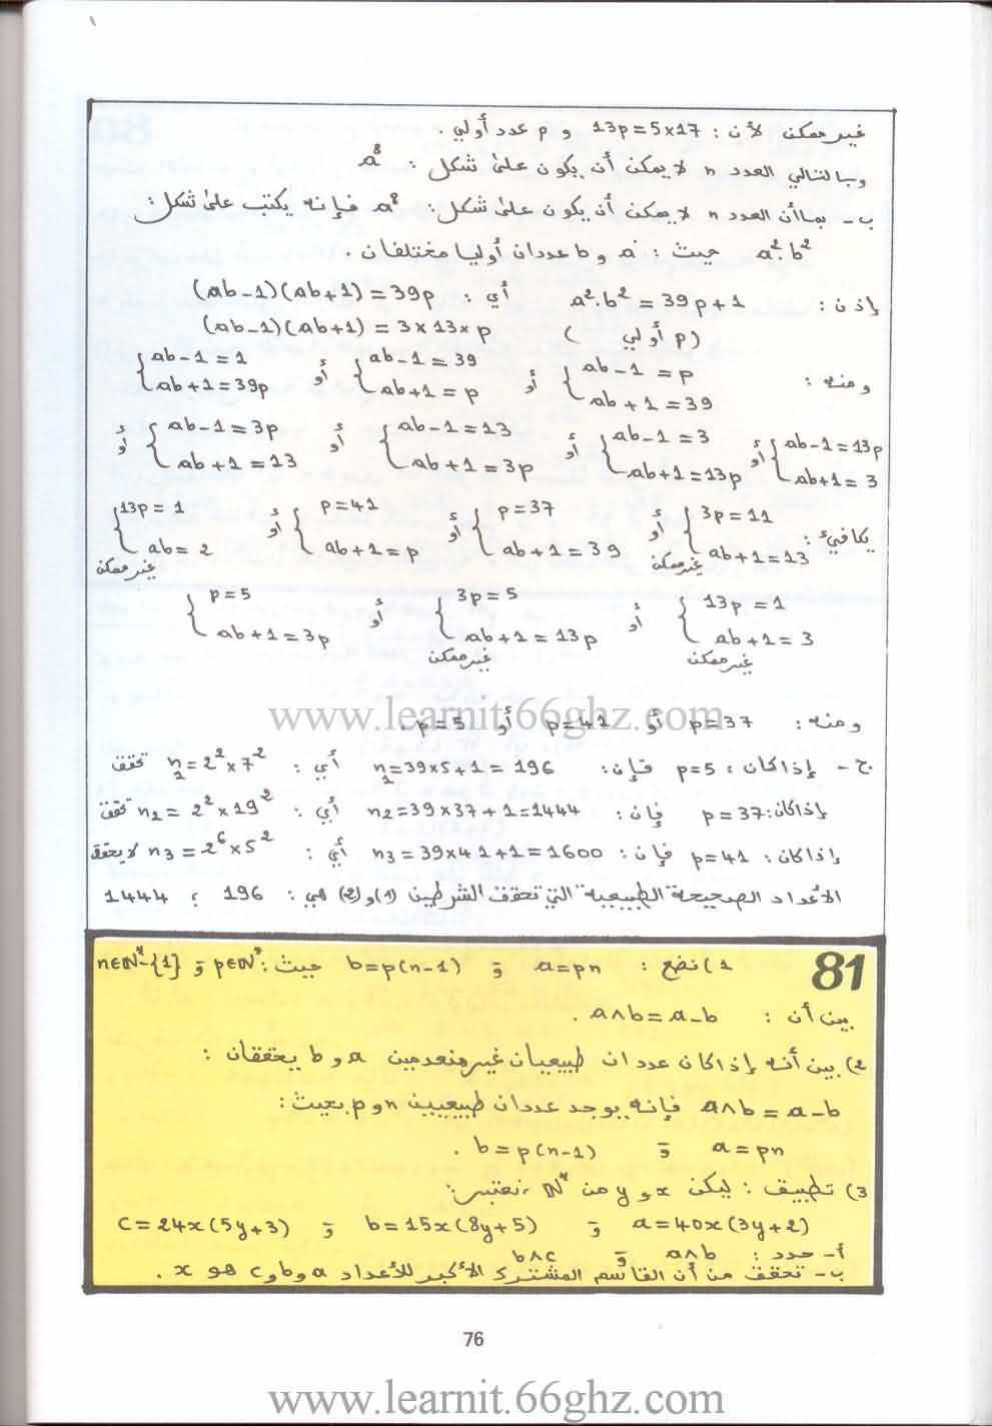 غير ممكن لأن : 13p=5×17 و p عدد أولي .
وبالتالي العدد n لا يمكن أن يكون على شكل : a⁸
ب- بما أن العدد n لا يمكن أن يكون على شكل : a⁸ فإنه يكتب على شكل :
a².b² حيث : a و b عددان أوليا مختلفان .
إذن : a².b² = 39p+1 أي : (ab-1)(ab+1) = 39p
(p أولي ) (ab-1)(ab+1) = 3×13×p
ومنه : { ab-1 = p ab+1 = 39 أو { ab-1 = 39 ab+1 = p أو { ab-1 = 1 ab+1 = 39p
أو { ab-1 = 13p ab+1 = 3 أو { ab-1 = 3 ab+1 = 13p أو { ab-1 = 13 ab+1 = 3p أو { ab-1 = 3p ab+1 = 13
يكافيء : { 3p = 11 ab+1 = 13 غير ممكن أو { p = 37 ab+1 = 39 أو { p = 41 ab+1 = p أو { 13p = 1 ab = 2 غير ممكن
{ 13p = 1 ab+1 = 3 غير ممكن أو { 3p = 5 ab+1 = 13p غير ممكن أو { p = 5 ab+1 = 3p
ومنه : p=37 أو p=41 أو p=5 .
www.learnit.66ghz.com
ج- إذا كان : p=5 فإن : n₁=39×5+1 = 196 أي : n₁=2²×7² تحقق
إذا كان : p=37 فإن : n₂=39×37+1=1444 أي : n₂=2²×19² تحقق
إذا كان : p=41 فإن : n₃=39×41+1=1600 أي : n₃=2⁶×5² لا يحقق
الأعداد الصحيحة الطبيعية التي تحقق الشرطين (1) و (2) هي : 196 ؛ 1444
81
1) نضع : a=pn و b=p(n-1) حيث : p∈ℕ* و n∈ℕ*-{1}
بين أن : a∧b = a-b .
2) بين أنه إذا كان عددان طبيعيان غير منعدمين a و b يحققان :
a∧b = a-b فإنه يوجد عددان طبيعيين n و p بحيث :
a=pn و b=p(n-1) .
3) تطبيق : ليكن x و y من ℕ* ، نعتبر :
a=40x(3y+2) و b=15x(8y+5) و c=24x(5y+3)
أ- حدد : a∧b و b∧c
ب- تحقق من أن القاسم المشترك الأكبر للأعداد a و b و c هو x .
76
www.learnit.66ghz.com